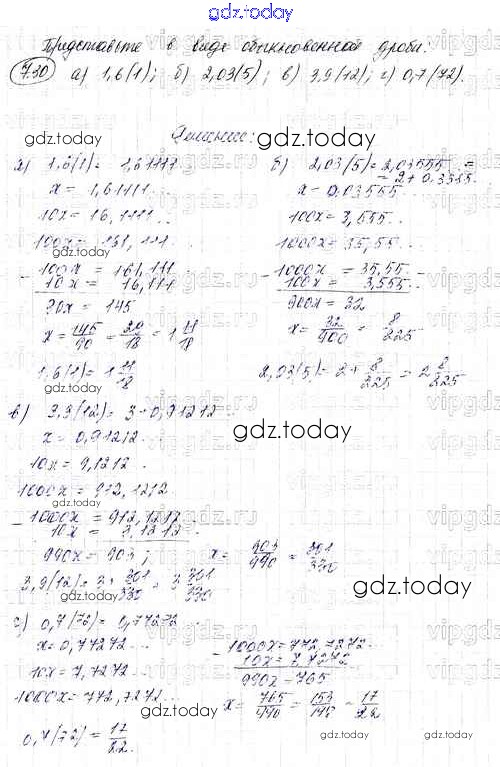 gdz.today
Представьте в виде обыкновенной дроби:
7.30 а) 1,6(1); б) 2,03(5); в) 3,9(12); г) 0,7(72).
Решение:
gdz.today
gdz.today
а) 1,6(1) = 1,61111
x = 1,61111...
10x = 16,1111...
100x = 161,111...
- 100x = 161,111
10x = 16,111
90x = 145
x = 145/90 = 29/18 = 1 11/18
1,6(1) = 1 11/18
gdz.today
б) 2,03(5) = 2,03555... =
= 2 + 0,0355...
x = 0,03555...
100x = 3,555...
1000x = 35,55...
- 1000x = 35,55...
100x = 3,555...
900x = 32
x = 32/900 = 8/225
2,03(5) = 2 + 8/225 = 2 8/225
gdz.today
в) 3,9(12) = 3 + 0,91212...
x = 0,91212...
10x = 9,1212...
1000x = 912,1212
- 1000x = 912,1212...
10x = 9,1212...
990x = 903; x = 903/990 = 301/330
3,9(12) = 3 + 301/330 = 3 301/330
gdz.today
gdz.today
г) 0,7(72) = 0,77272...
x = 0,77272...
10x = 7,7272...
1000x = 772,7272...
- 1000x = 772,7272...
10x = 7,7272...
990x = 765
x = 765/990 = 153/198 = 17/22
0,7(72) = 17/22.
gdz.today
gdz.today
gdz.today